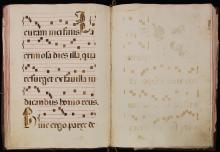 curam mei finis.
crimosa dies illa, qua
resurget ex fauilla iu
dicandus homo reus.
Huic ergo parce de